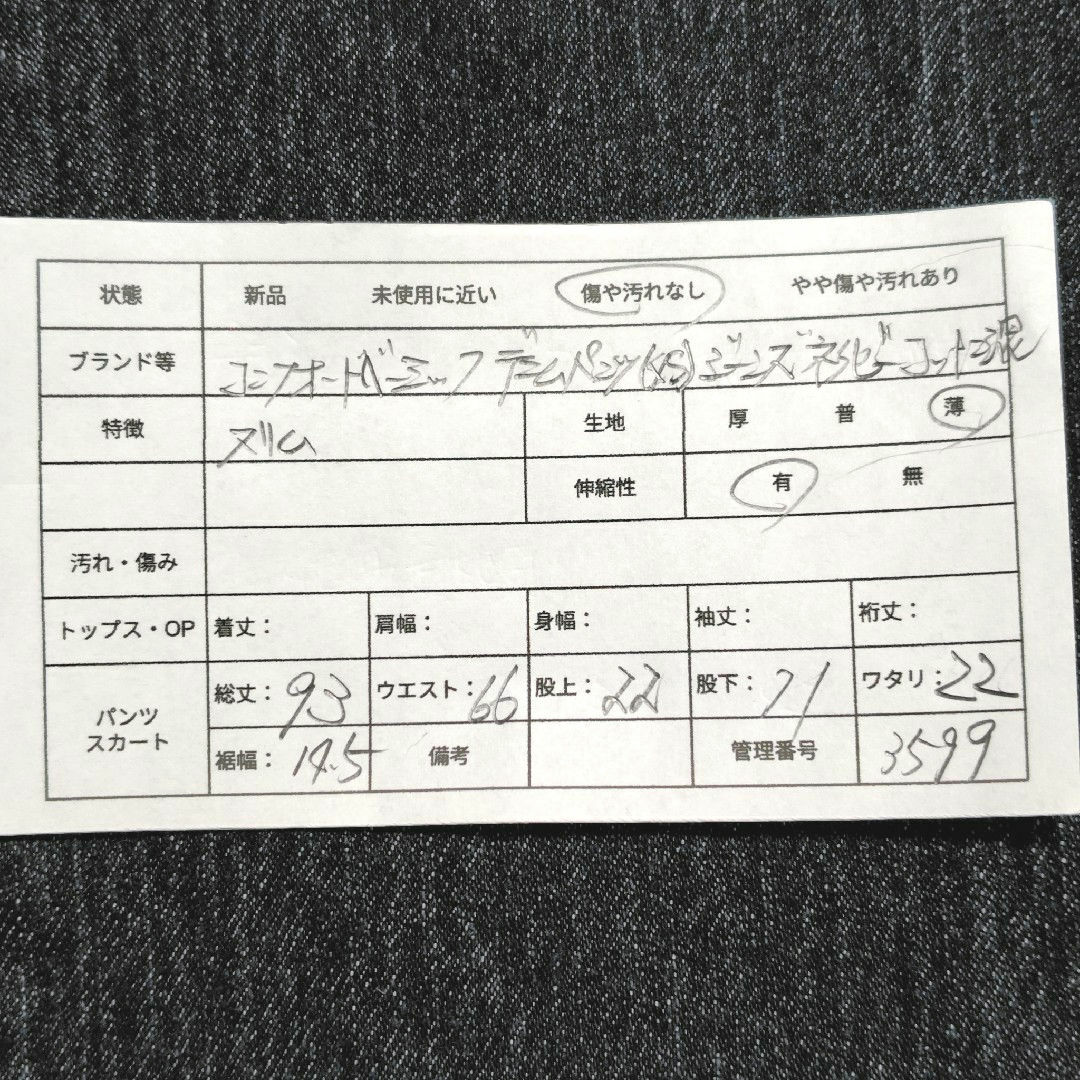 状態 新品 未使用に近い 傷や汚れなし やや傷や汚れあり
ブランド等 コンフォートベーシック デニムパンツ(XS) ジーンズ ネイビー コットン混
特徴 スリム 生地 厚 普 薄
伸縮性 有 無
汚れ・傷み
トップス・OP 着丈: 肩幅: 身幅: 袖丈: 裄丈:
パンツ スカート
総丈: 93 ウエスト: 66 股上: 22 股下: 71 ワタリ: 22
裾幅: 14.5 備考 管理番号 3599